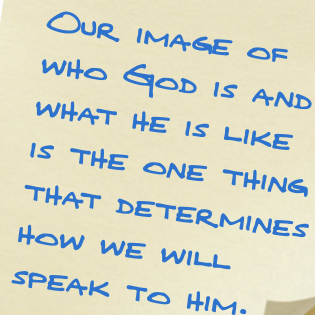 Our image of
who God is and
what he is like
is the one thing
that determines
how we will
speak to him.